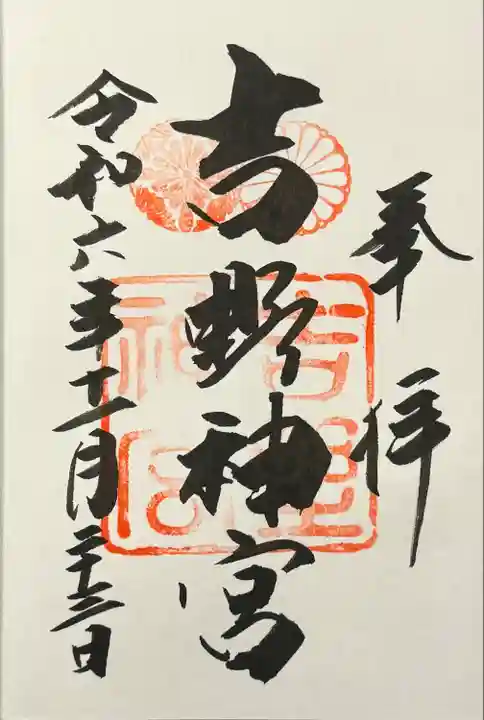 奉拝
吉野神宮
令和六年十一月二十三日
吉野神宮